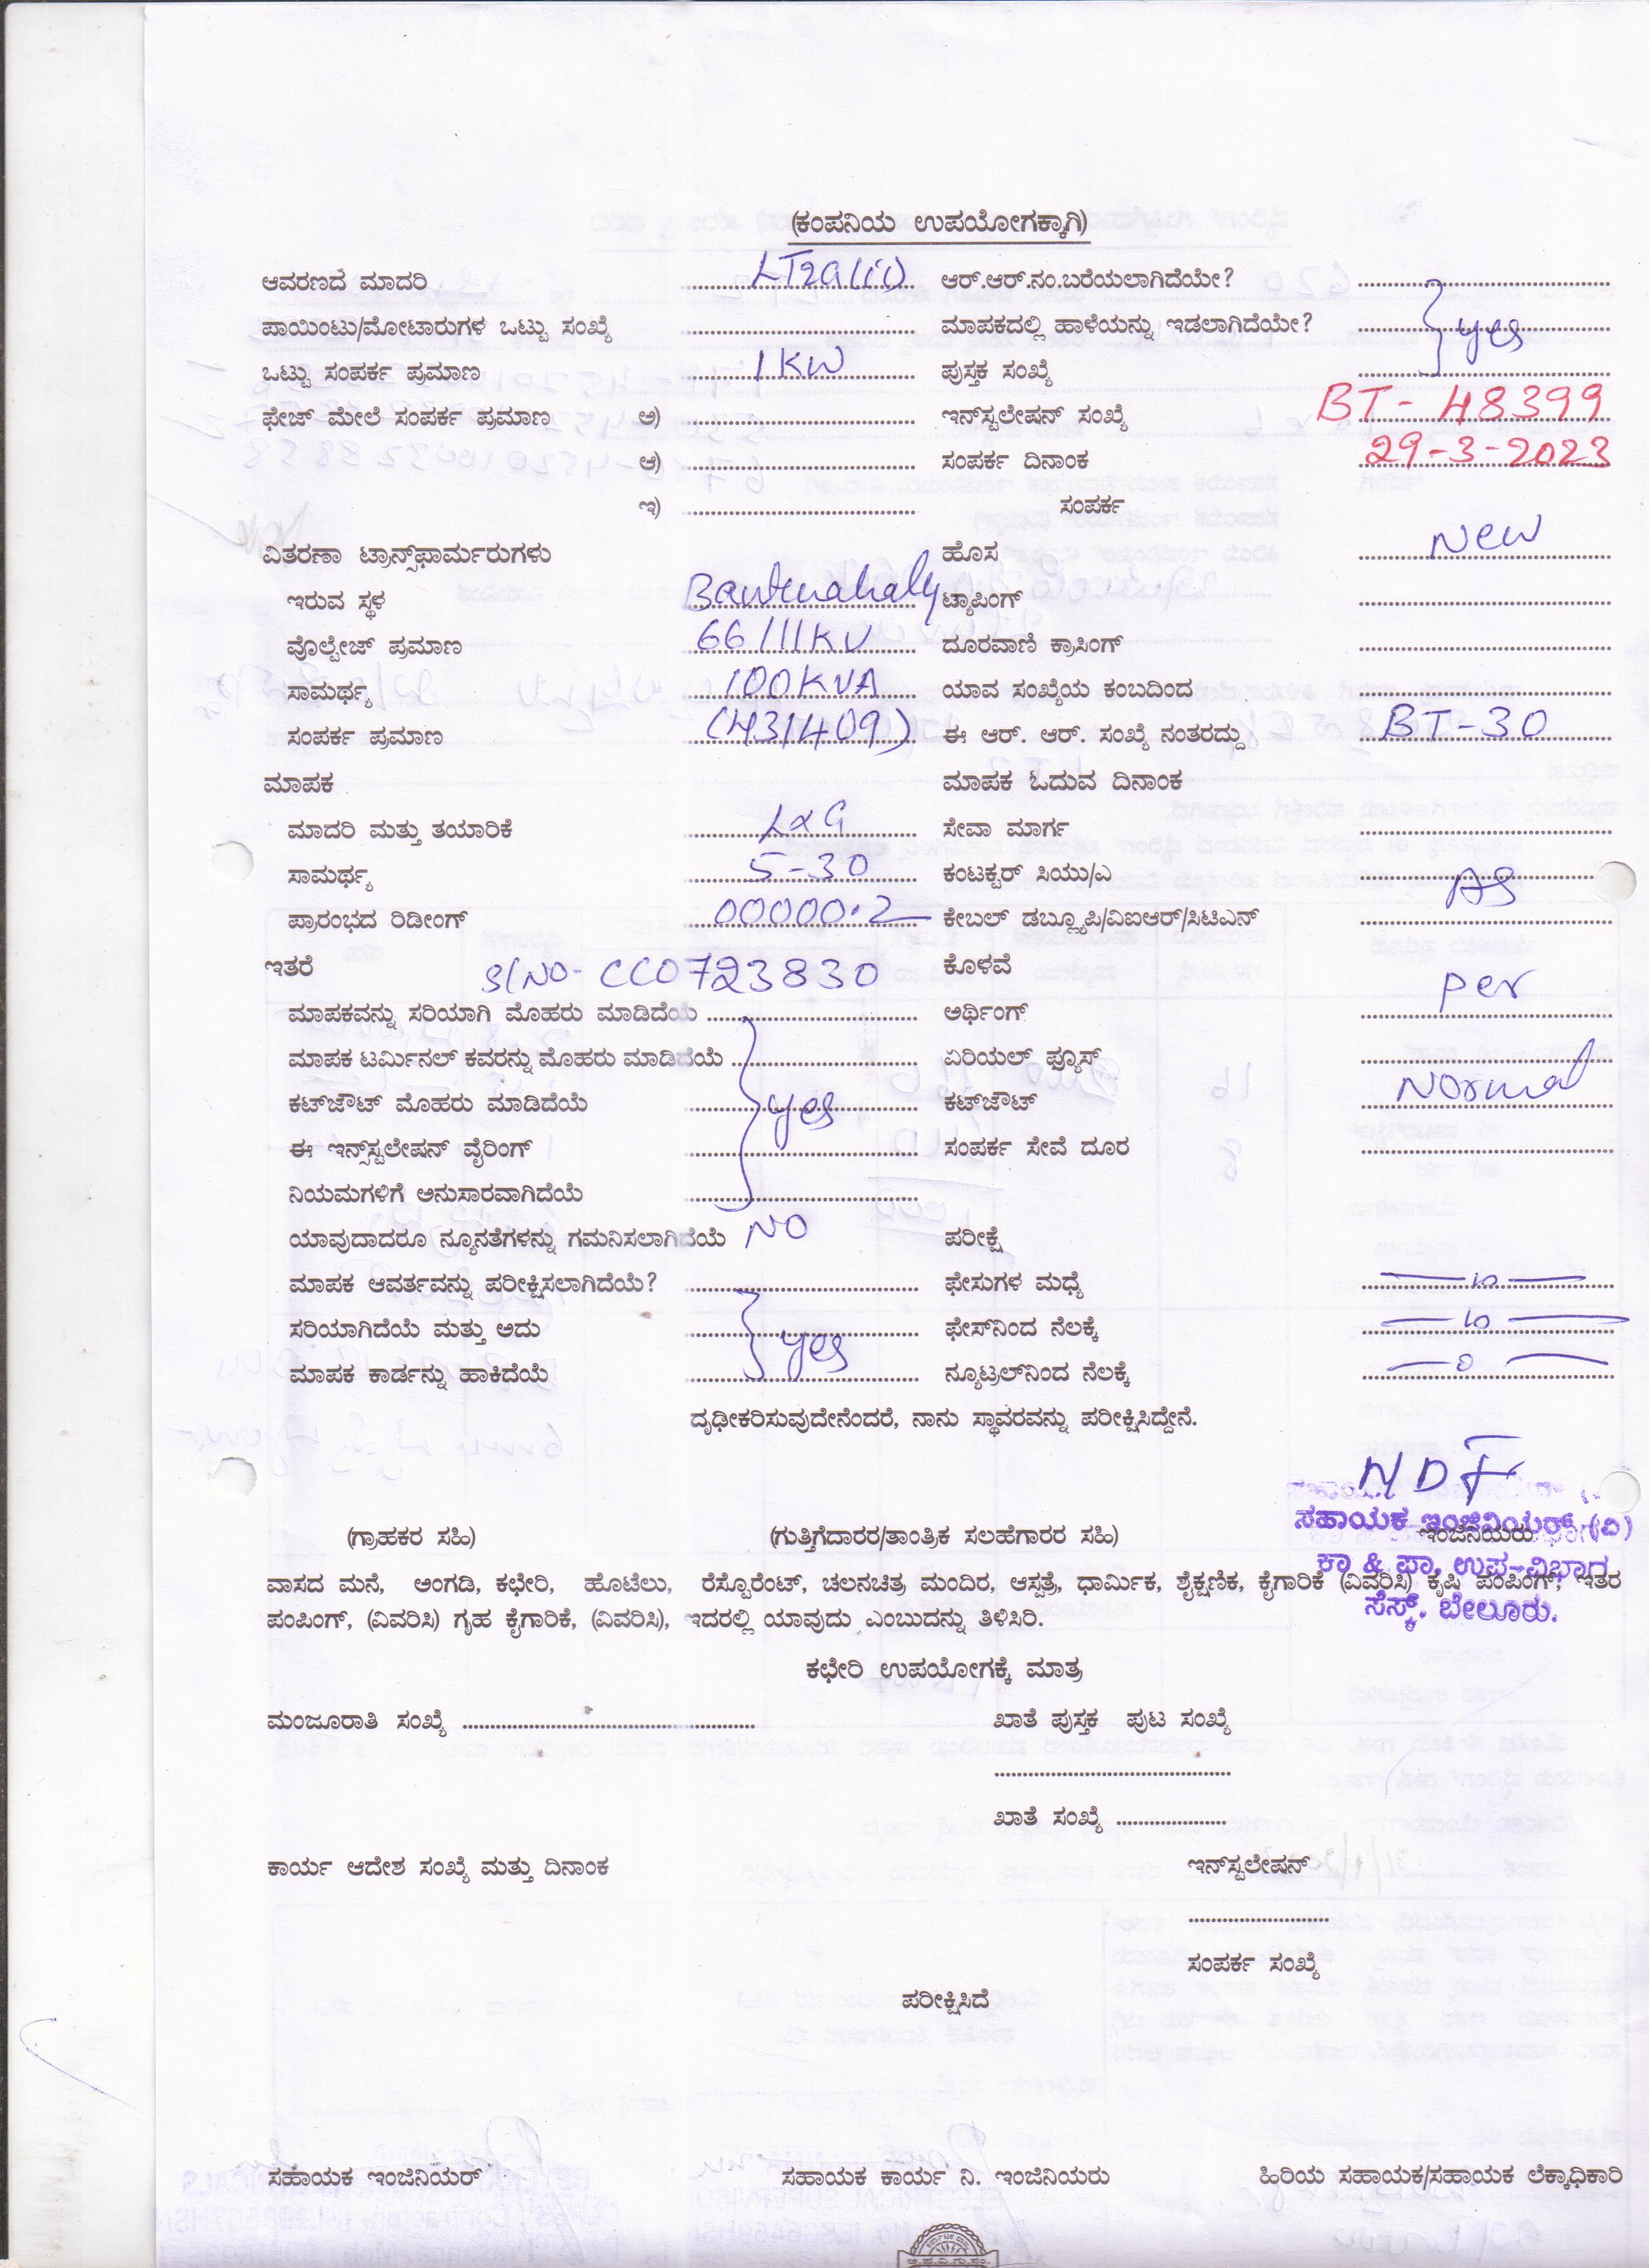 (ಕಂಪನಿಯ ಉಪಯೋಗಕ್ಕಾಗಿ)
ಆವರಣದ ಮಾದರಿ LT2a(ii) ಆರ್.ಆರ್.ನಂ.ಬರೆಯಲಾಗಿದೆಯೇ?
ಪಾಯಿಂಟು/ಮೋಟಾರುಗಳ ಒಟ್ಟು ಸಂಖ್ಯೆ ಮಾಪಕದಲ್ಲಿ ಹಾಳೆಯನ್ನು ಇಡಲಾಗಿದೆಯೇ? yes
ಒಟ್ಟು ಸಂಪರ್ಕ ಪ್ರಮಾಣ 1KW ಪುಸ್ತಕ ಸಂಖ್ಯೆ
ಫೇಜ್ ಮೇಲೆ ಸಂಪರ್ಕ ಪ್ರಮಾಣ ಅ) ಇನ್‌ಸ್ಟಲೇಷನ್ ಸಂಖ್ಯೆ BT-48399
ಆ) ಸಂಪರ್ಕ ದಿನಾಂಕ 29-3-2023
ಇ) ಸಂಪರ್ಕ
ವಿತರಣಾ ಟ್ರಾನ್ಸ್‌ಫಾರ್ಮರುಗಳು ಹೊಸ New
ಇರುವ ಸ್ಥಳ Bantenahaly ಟ್ಯಾಪಿಂಗ್
ವೊಲ್ಟೇಜ್ ಪ್ರಮಾಣ 66/11KV ದೂರವಾಣಿ ಕ್ರಾಸಿಂಗ್
ಸಾಮರ್ಥ್ಯ 100KVA ಯಾವ ಸಂಖ್ಯೆಯ ಕಂಬದಿಂದ
ಸಂಪರ್ಕ ಪ್ರಮಾಣ (431409) ಈ ಆರ್. ಆರ್. ಸಂಖ್ಯೆ ನಂತರದ್ದು BT-30
ಮಾಪಕ ಮಾಪಕ ಓದುವ ದಿನಾಂಕ
ಮಾದರಿ ಮತ್ತು ತಯಾರಿಕೆ L&G ಸೇವಾ ಮಾರ್ಗ
ಸಾಮರ್ಥ್ಯ 5-30 ಕಂಟಕ್ಟರ್ ಸಿಯು/ಎ AS
ಪ್ರಾರಂಭದ ರಿಡೀಂಗ್ 00000.2 ಕೇಬಲ್ ಡಬ್ಲ್ಯೂಪಿ/ವಿಐಆರ್/ಸಿಟಿಎನ್
ಇತರೆ Sl NO- CC0723830 ಕೊಳವೆ Per
ಮಾಪಕವನ್ನು ಸರಿಯಾಗಿ ಮೊಹರು ಮಾಡಿದೆಯೆ ಅರ್ಥಿಂಗ್
ಮಾಪಕ ಟರ್ಮಿನಲ್ ಕವರನ್ನು ಮೊಹರು ಮಾಡಿದೆಯೆ ಏರಿಯಲ್ ಫ್ಯೂಸ್
ಕಟ್‌ಜೌಟ್ ಮೊಹರು ಮಾಡಿದೆಯೆ yes ಕಟ್‌ಜೌಟ್ Normal
ಈ ಇನ್ಸ್‌ಸ್ಟಲೇಷನ್ ವೈರಿಂಗ್ ಸಂಪರ್ಕ ಸೇವೆ ದೂರ
ನಿಯಮಗಳಿಗೆ ಅನುಸಾರವಾಗಿದೆಯೆ
ಯಾವುದಾದರೂ ನ್ಯೂನತೆಗಳನ್ನು ಗಮನಿಸಲಾಗಿದೆಯೆ NO ಪರೀಕ್ಷೆ
ಮಾಪಕ ಆವರ್ತವನ್ನು ಪರೀಕ್ಷಿಸಲಾಗಿದೆಯೆ? ಫೇಸುಗಳ ಮಧ್ಯೆ
ಸರಿಯಾಗಿದೆಯೆ ಮತ್ತು ಅದು yes ಫೇಸ್‌ನಿಂದ ನೆಲಕ್ಕೆ
ಮಾಪಕ ಕಾರ್ಡನ್ನು ಹಾಕಿದೆಯೆ ನ್ಯೂಟ್ರಲ್‌ನಿಂದ ನೆಲಕ್ಕೆ —0—
ದೃಢೀಕರಿಸುವುದೇನೆಂದರೆ, ನಾನು ಸ್ಥಾವರವನ್ನು ಪರೀಕ್ಷಿಸಿದ್ದೇನೆ.
(ಗ್ರಾಹಕರ ಸಹಿ) (ಗುತ್ತಿಗೆದಾರರ/ತಾಂತ್ರಿಕ ಸಲಹೆಗಾರರ ಸಹಿ) ಇಂಜಿನಿಯರು
ಸಹಾಯಕ ಇಂಜಿನಿಯರ್ (ವಿ)
ಕಾ & ಪಾ, ಉಪ-ವಿಭಾಗ
ಸೆಸ್ಕ್. ಬೇಲೂರು.
ವಾಸದ ಮನೆ, ಅಂಗಡಿ, ಕಛೇರಿ, ಹೊಟೆಲು, ರೆಸ್ಟೊರೆಂಟ್, ಚಲನಚಿತ್ರ ಮಂದಿರ, ಆಸ್ಪತ್ರೆ, ಧಾರ್ಮಿಕ, ಶೈಕ್ಷಣಿಕ, ಕೈಗಾರಿಕೆ (ವಿವರಿಸಿ) ಕೃಷಿ ಪಂಪಿಂಗ್, ಇತರ
ಪಂಪಿಂಗ್, (ವಿವರಿಸಿ) ಗೃಹ ಕೈಗಾರಿಕೆ, (ವಿವರಿಸಿ), ಇದರಲ್ಲಿ ಯಾವುದು ಎಂಬುದನ್ನು ತಿಳಿಸಿರಿ.
ಕಛೇರಿ ಉಪಯೋಗಕ್ಕೆ ಮಾತ್ರ
ಮಂಜೂರಾತಿ ಸಂಖ್ಯೆ ಖಾತೆ ಪುಸ್ತಕ ಪುಟ ಸಂಖ್ಯೆ
ಖಾತೆ ಸಂಖ್ಯೆ
ಕಾರ್ಯ ಆದೇಶ ಸಂಖ್ಯೆ ಮತ್ತು ದಿನಾಂಕ ಇನ್‌ಸ್ಟಲೇಷನ್
ಸಂಪರ್ಕ ಸಂಖ್ಯೆ
ಪರೀಕ್ಷಿಸಿದೆ
ಸಹಾಯಕ ಇಂಜಿನಿಯರ್ ಸಹಾಯಕ ಕಾರ್ಯ ನಿ. ಇಂಜಿನಿಯರು ಹಿರಿಯ ಸಹಾಯಕ/ಸಹಾಯಕ ಲೆಕ್ಕಾಧಿಕಾರಿ